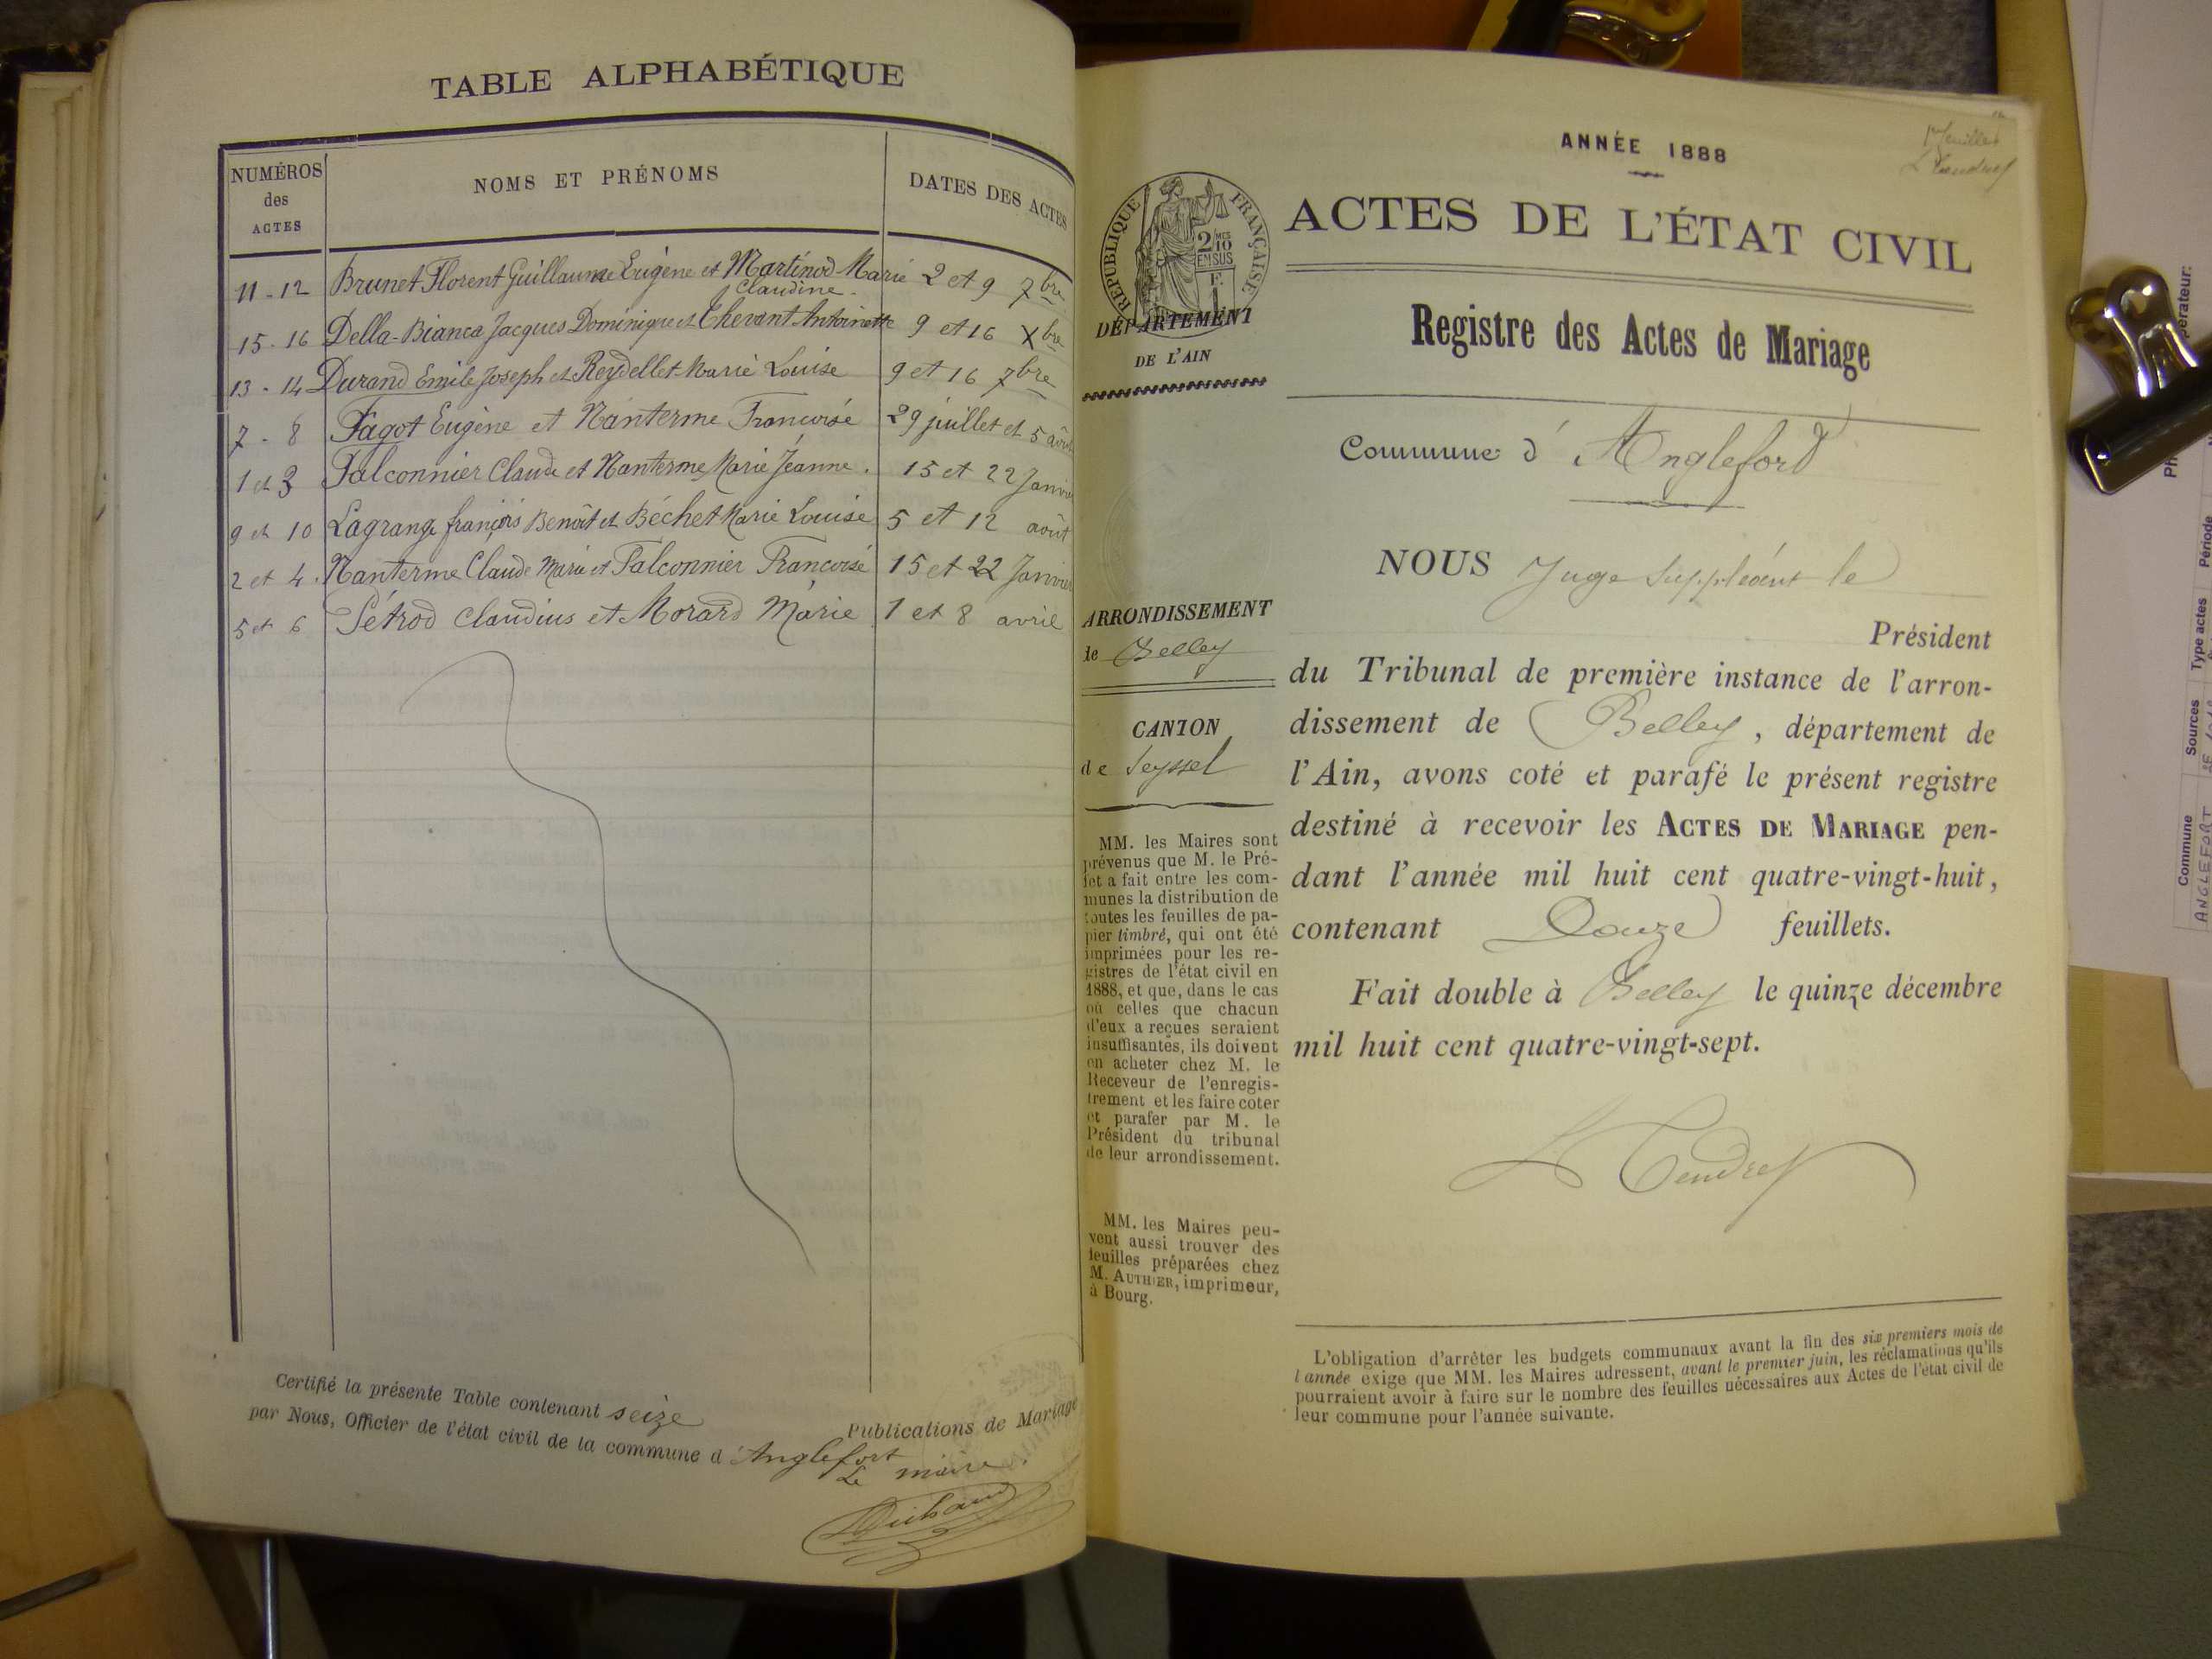 TABLE ALPHABÉTIQUE
NUMÉROS
des
ACTES
NOMS ET PRÉNOMS
DATES DES ACTES
11 - 12 Brunet Florent Guillaume Eugène et Martinod Marie 2 et 9 7bre
Claudine
15 - 16 Della-Bianca Jacques Dominique et Thevent Antoinette 9 et 16 Xbre
13 - 14 Durand Emile Joseph et Reydellet Marie Louise 9 et 16 7bre
7 - 8 Fagot Eugène et Nanterme Francoise 29 juillet et 5 août
1 et 3 Falconnier Claude et Nanterme Marie Jeanne. 15 et 22 Janvier
9 et 10 Lagrange françois Benoît et Béchet Marie Louise 5 et 12 août
2 et 4. Nanterme Claude Marie et Falconnier Francoise 15 et 22 Janvier
5 et 6 Pétrod Claudius et Morard Marie 1 et 8 avril
Certifié la présente Table contenant seize Publications de Mariage
par Nous, Officier de l'état civil de la commune d'Anglefort
Le maire.
ANNÉE 1888
1er feuillet
ACTES DE L'ÉTAT CIVIL
RÉPUBLIQUE FRANÇAISE
2/10 MES
EN SUS
F.
1
DÉPARTEMENT
DE L'AIN
Registre des Actes de Mariage
Commune d'Anglefort
NOUS Juge Suppléant le
Président
du Tribunal de première instance de l'arron-
dissement de Belley, département de
l'Ain, avons coté et parafé le présent registre
destiné à recevoir les ACTES DE MARIAGE pen-
dant l'année mil huit cent quatre-vingt-huit,
contenant Douze feuillets.
Fait double à Belley le quinze décembre
mil huit cent quatre-vingt-sept.
L Tendret
ARRONDISSEMENT
de Belley
CANTON
de Seyssel
MM. les Maires sont
prévenus que M. le Pré-
fet a fait entre les com-
munes la distribution de
toutes les feuilles de pa-
pier timbré, qui ont été
imprimées pour les re-
gistres de l'état civil en
1888, et que, dans le cas
où celles que chacun
d'eux a reçues seraient
insuffisantes, ils doivent
en acheter chez M. le
Receveur de l'enregis-
trement et les faire coter
et parafer par M. le
Président du tribunal
de leur arrondissement.
MM. les Maires peu-
vent aussi trouver des
feuilles préparées chez
M. AUTHIER, imprimeur,
à Bourg.
L'obligation d'arrêter les budgets communaux avant la fin des six premiers mois de
l'année exige que MM. les Maires adressent, avant le premier juin, les réclamations qu'ils
pourraient avoir à faire sur le nombre des feuilles nécessaires aux Actes de l'état civil de
leur commune pour l'année suivante.
Commune
ANGLEFORT
Sources
Type actes
Période